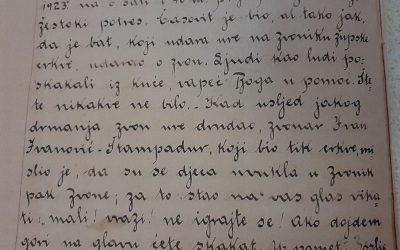 1923 na 8 sati i
žestoki potres. Časovit je bio, al tako jak,
da je bat, koji udara ure na zvoniku župske
crkve, udarao o zvon. Ljudi kao ludi po-
skakali iz kuće, vapeć Boga u pomoć. Šte-
te nikakve ne bilo. - Kad usljed jakog
drmanja zvon ure drndao, zvonar Ivan
Ivanović-Stampadur, koji bio tik crkve, mi-
slio je, da su se djeca uvukla u zvonik
pak zvone; za to stao na vas glas vika-
ti: mali! vrazi! ne igrajte se! Ako dojdem
gori na glavu ćete skakat. U pamet!